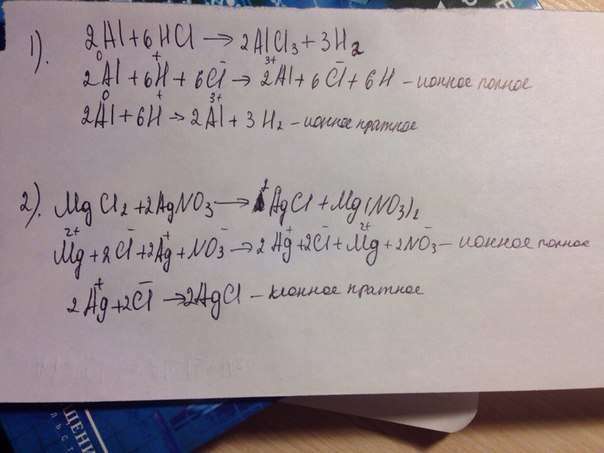 1). 2Al + 6HCl → 2AlCl₃ + 3H₂
2Al⁰ + 6H⁺ + 6Cl⁻ → 2Al³⁺ + 6Cl⁻ + 6H – ионное полное
2Al⁰ + 6H⁺ → 2Al³⁺ + 3H₂ – ионное краткое
2). MgCl₂ + 2AgNO₃ → AgCl + Mg(NO₃)₂
Mg²⁺ + 2Cl⁻ + 2Ag⁺ + NO₃⁻ → 2Ag⁺ + 2Cl⁻ + Mg²⁺ + 2NO₃⁻ – ионное полное
2Ag⁺ + 2Cl⁻ → 2AgCl – ионное краткое